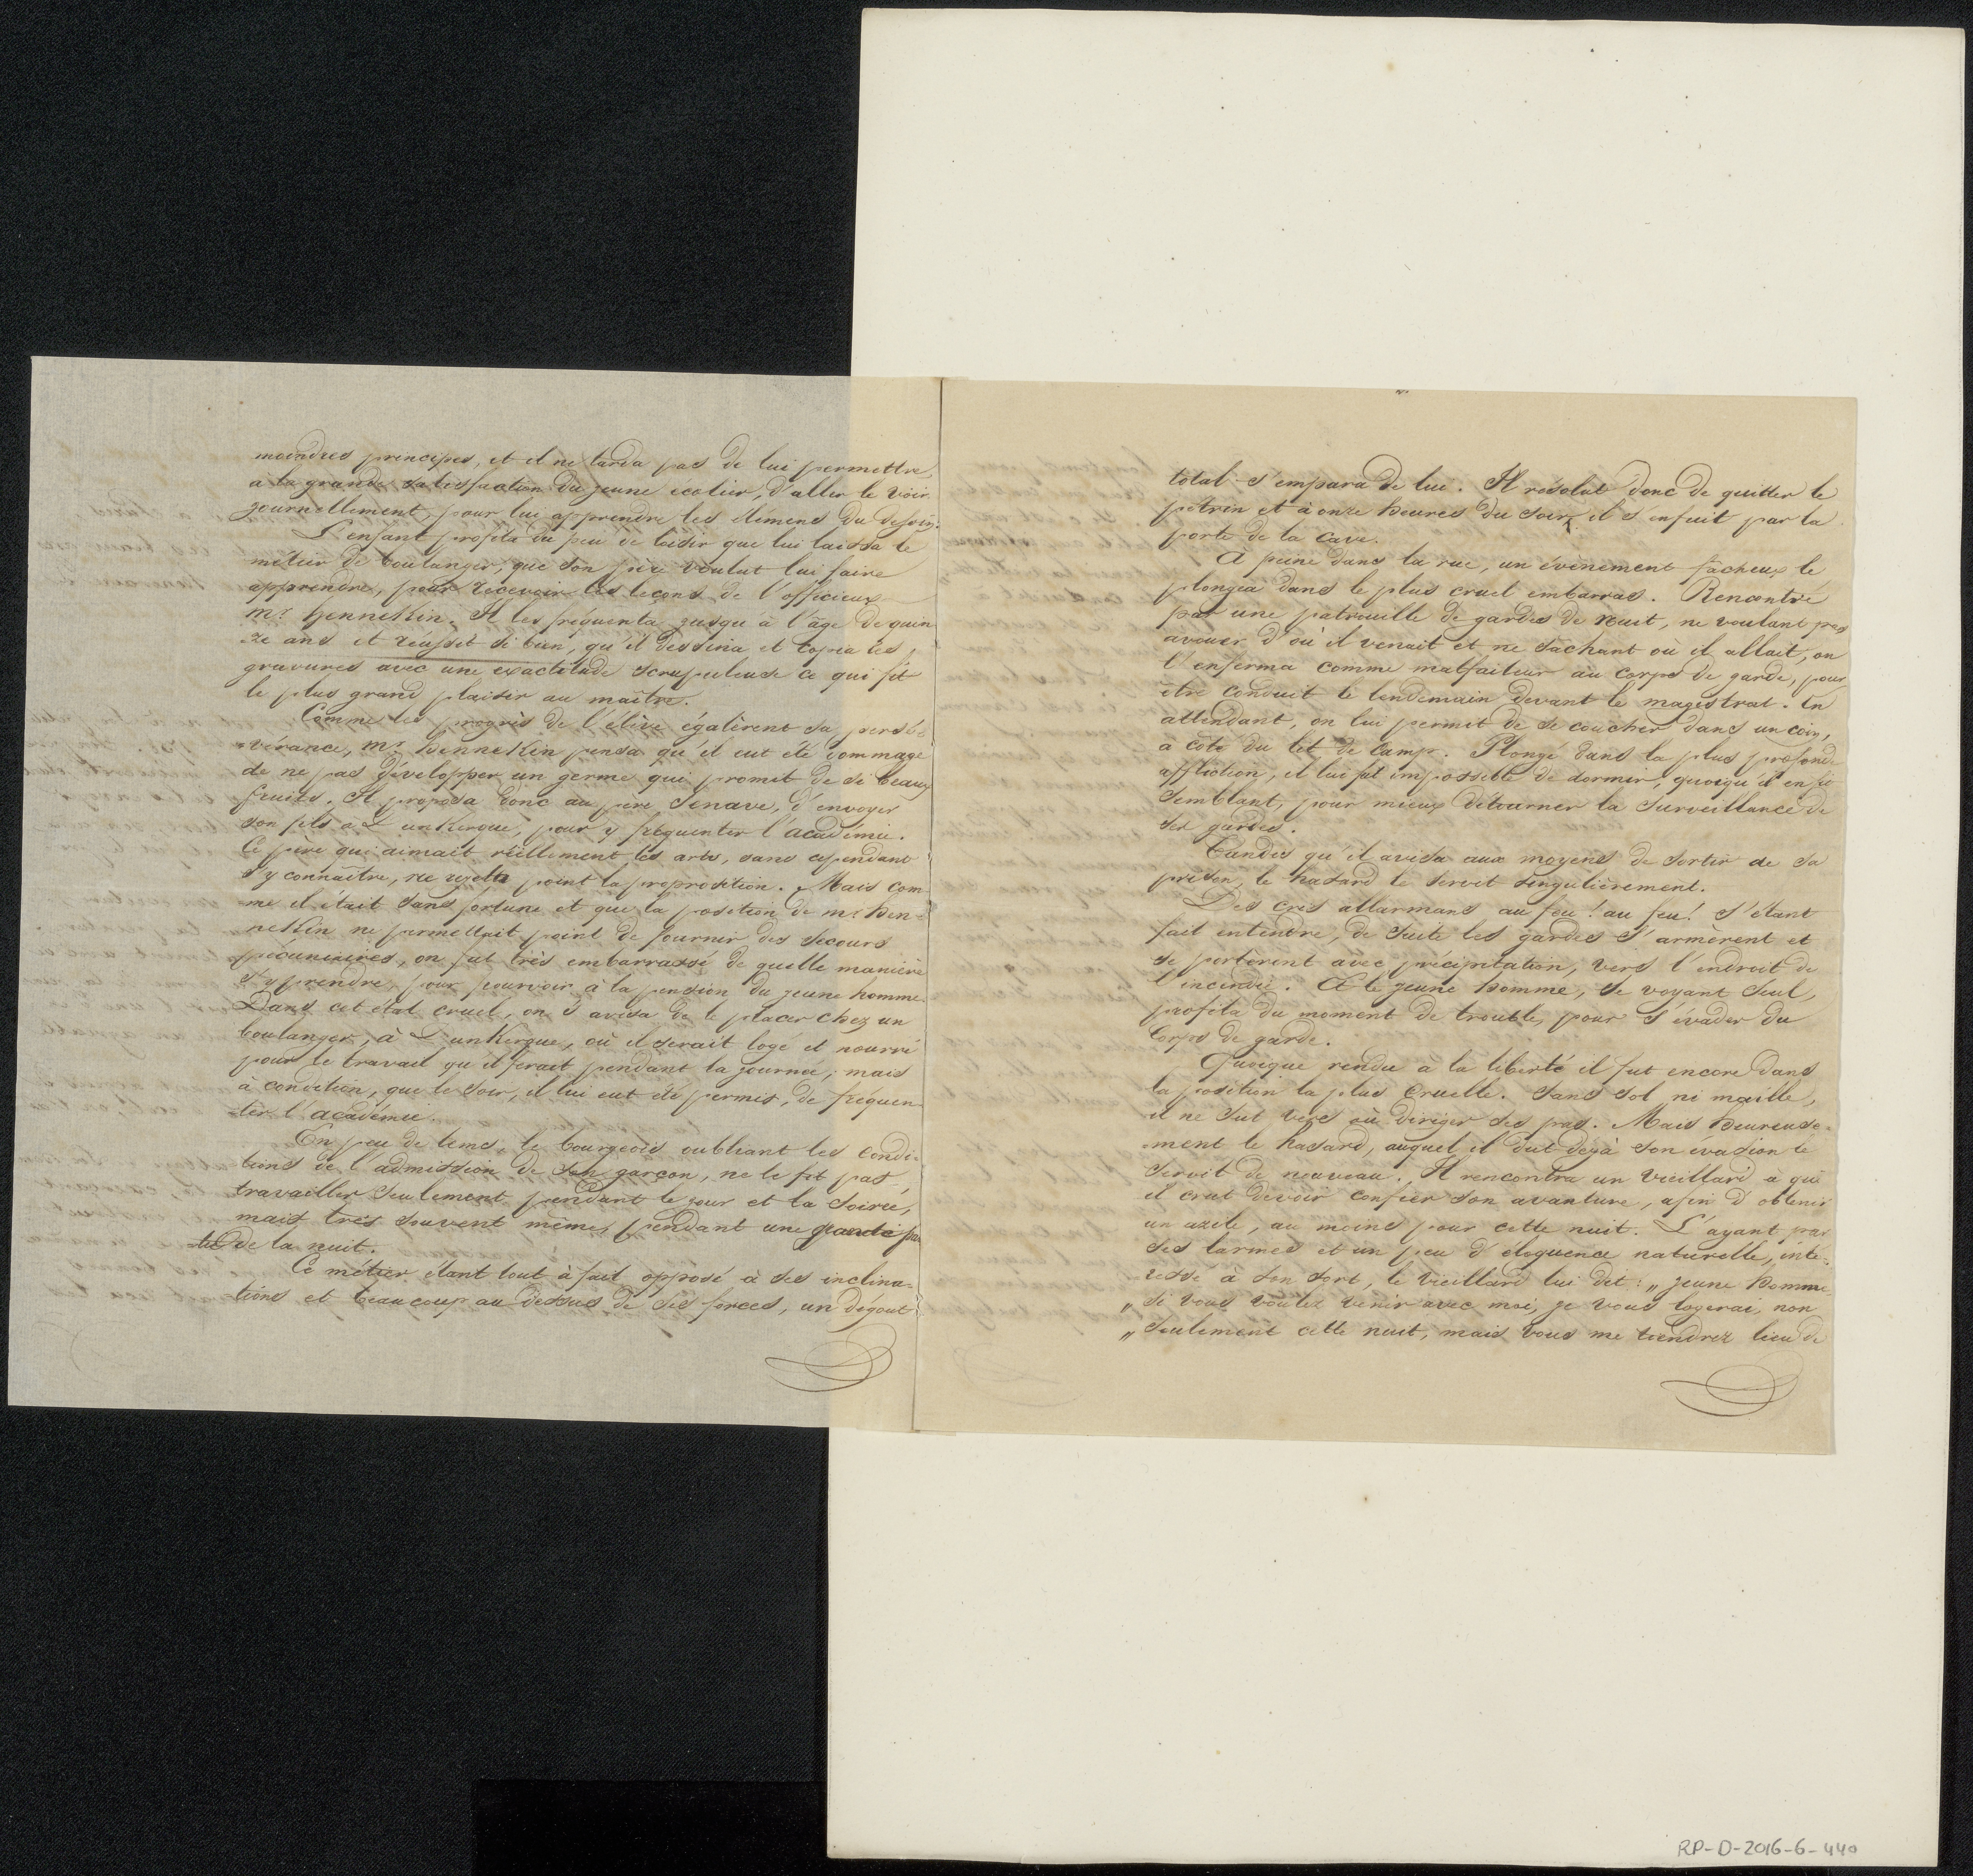 moindres principes, et il ne tarda pas de lui permettre
à la grande satisfaction du jeune écolier, d'aller le voir
journellement, pour lui apprendre les élémens du dessin.
L'enfant profita du peu de loisir que lui laissa le
métier de boulanger, que son père voulut lui faire
apprendre, pour recevoir les leçons de l'officieux
Mr. Hennekin. Il les fréquenta jusqu'à l'âge de quin
ze ans et réussit si bien, qu'il dessina et copia les
gravures avec une exactitude scrupuleuse ce qui fit
le plus grand plaisir au maître.
Comme les progrès de l'élève égalèrent sa persé-
vérance, Mr. Hennekin pensa qu'il eut été dommage
de ne pas développer un germe qui promit de si beaux
fruits. Il proposa donc au père Senave, d'envoyer
son fils à Dunkerque, pour y fréquenter l'académie.
Ce père qui aimait réellement les arts, sans cependant
s'y connaître, ne rejetta point la proprosition. Mais com-
me il était sans fortune et que la position de mr. Hen-
nekin ne permettait point de fournir des secours
pécuniaires, on fut très embarrassé de quelle manière
s'y prendre, pour pourvoir à la pension du jeune homme.
Dans cet état cruel, on s'avisa de le placer chez un
boulanger, à Dunkerque, où il serait logé et nourri
pour le travail qu'il ferait pendant la journée; mais
à condition, que le soir, il lui eut été permis, de fréquen-
ter l'académie.
En peu de tems, le bourgeois oubliant les condi-
tions de l'admission de son garçon, ne le fit pas
travailler seulement pendant le jour et la soirée,
mais très souvent même, pendant une grande par
tie de la nuit.
Ce métier étant tout à fait opposé à ses inclina-
tions et beaucoup au dessus de ses forces, un dégout
total s'empara de lui. Il résolut donc de quitter le
pétrin et à onze heures du soir, il s'enfuit par la
porte de la cave.
A peine dans la rue, un évènement facheux le
plongea dans le plus cruel embarras. Rencontré
par une patrouille de gardes de nuit, ne voulant pas
avouer d'où il venait et ne sachant où il allait, on
l'enferma comme malfaiteur au corps de garde, pour
être conduit le lendemain devant le magistrat. En
attendant, on lui permit de se coucher dans un coin,
a côté du lit de camp. Plongé dans la plus profonde
affliction, il lui fut impossible de dormir, quoiqu'il en fit
semblant, pour mieux détourner la surveillance de
ses gardes.
Tandis qu'il avisa aux moyens de sortir de sa
prison, le hasard le servit singulièrement.
Des cris allarmans au feu! au feu! s'étant
fait entendre, de suite les gardes s'armèrent et
se portèrent avec précipitation, vers l'endroit de
l'incendie. Et le jeune homme, se voyant seul,
profita du moment de trouble, pour s'évader du
corps de garde.
Quoique rendu à la liberté il fut encore dans
la position la plus cruelle. Sans sol ni maille,
il ne sut vers où diriger ses pas. Mais heureuse-
ment le hasard, auquel il dut déjà son évasion le
servit de nouveau. Il rencontra un vieillard à qui
il crut devoir confier son avanture, afin d'obtenir
un azile, au moins pour cette nuit. L'ayant par
ses larmes et un peu d'éloquence naturelle, inté-
ressé à son sort, le vieillard lui dit: „ jeune homme
„ si vous voulez venir avec moi, je vous logerai, non
„ seulement cette nuit, mais vous me tiendrez lieu de
RP-D-2016-6-440